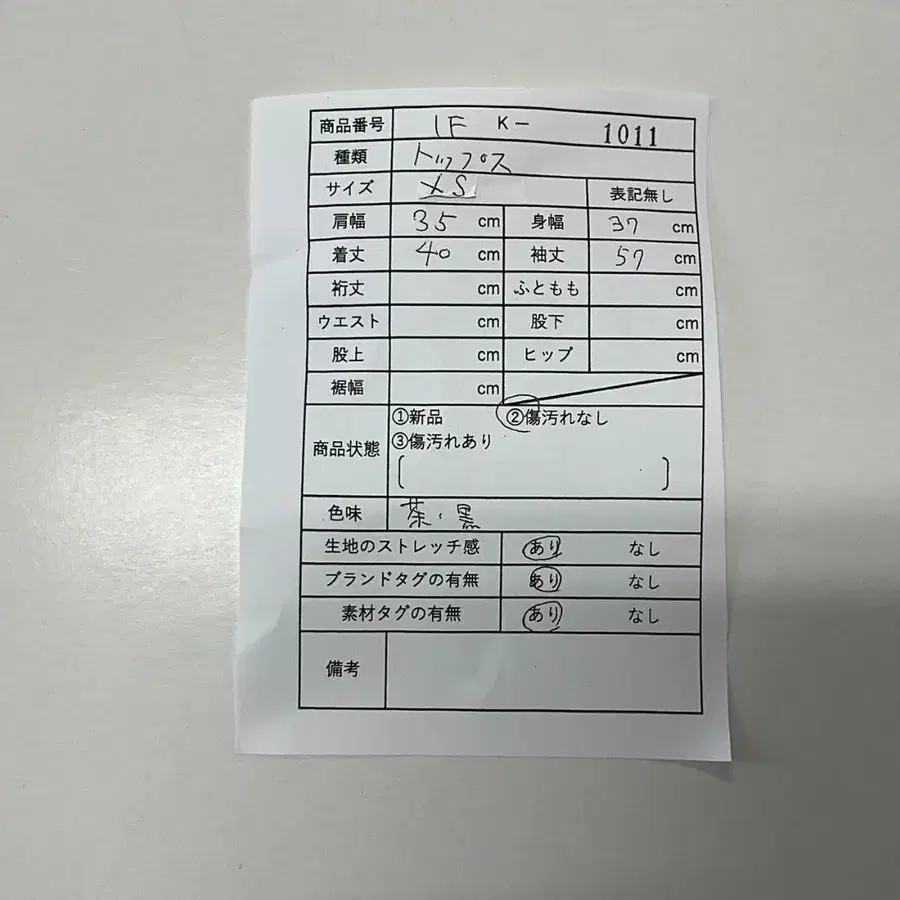 商品番号 1F K- 1011
種類 トップス
サイズ XS 表記無し
肩幅 35 cm 身幅 37 cm
着丈 40 cm 袖丈 57 cm
裄丈 cm ふともも cm
ウエスト cm 股下 cm
股上 cm ヒップ cm
裾幅 cm
商品状態 ①新品 ②傷汚れなし
③傷汚れあり
[ ]
色味 茶・黒
生地のストレッチ感 あり なし
ブランドタグの有無 あり なし
素材タグの有無 あり なし
備考